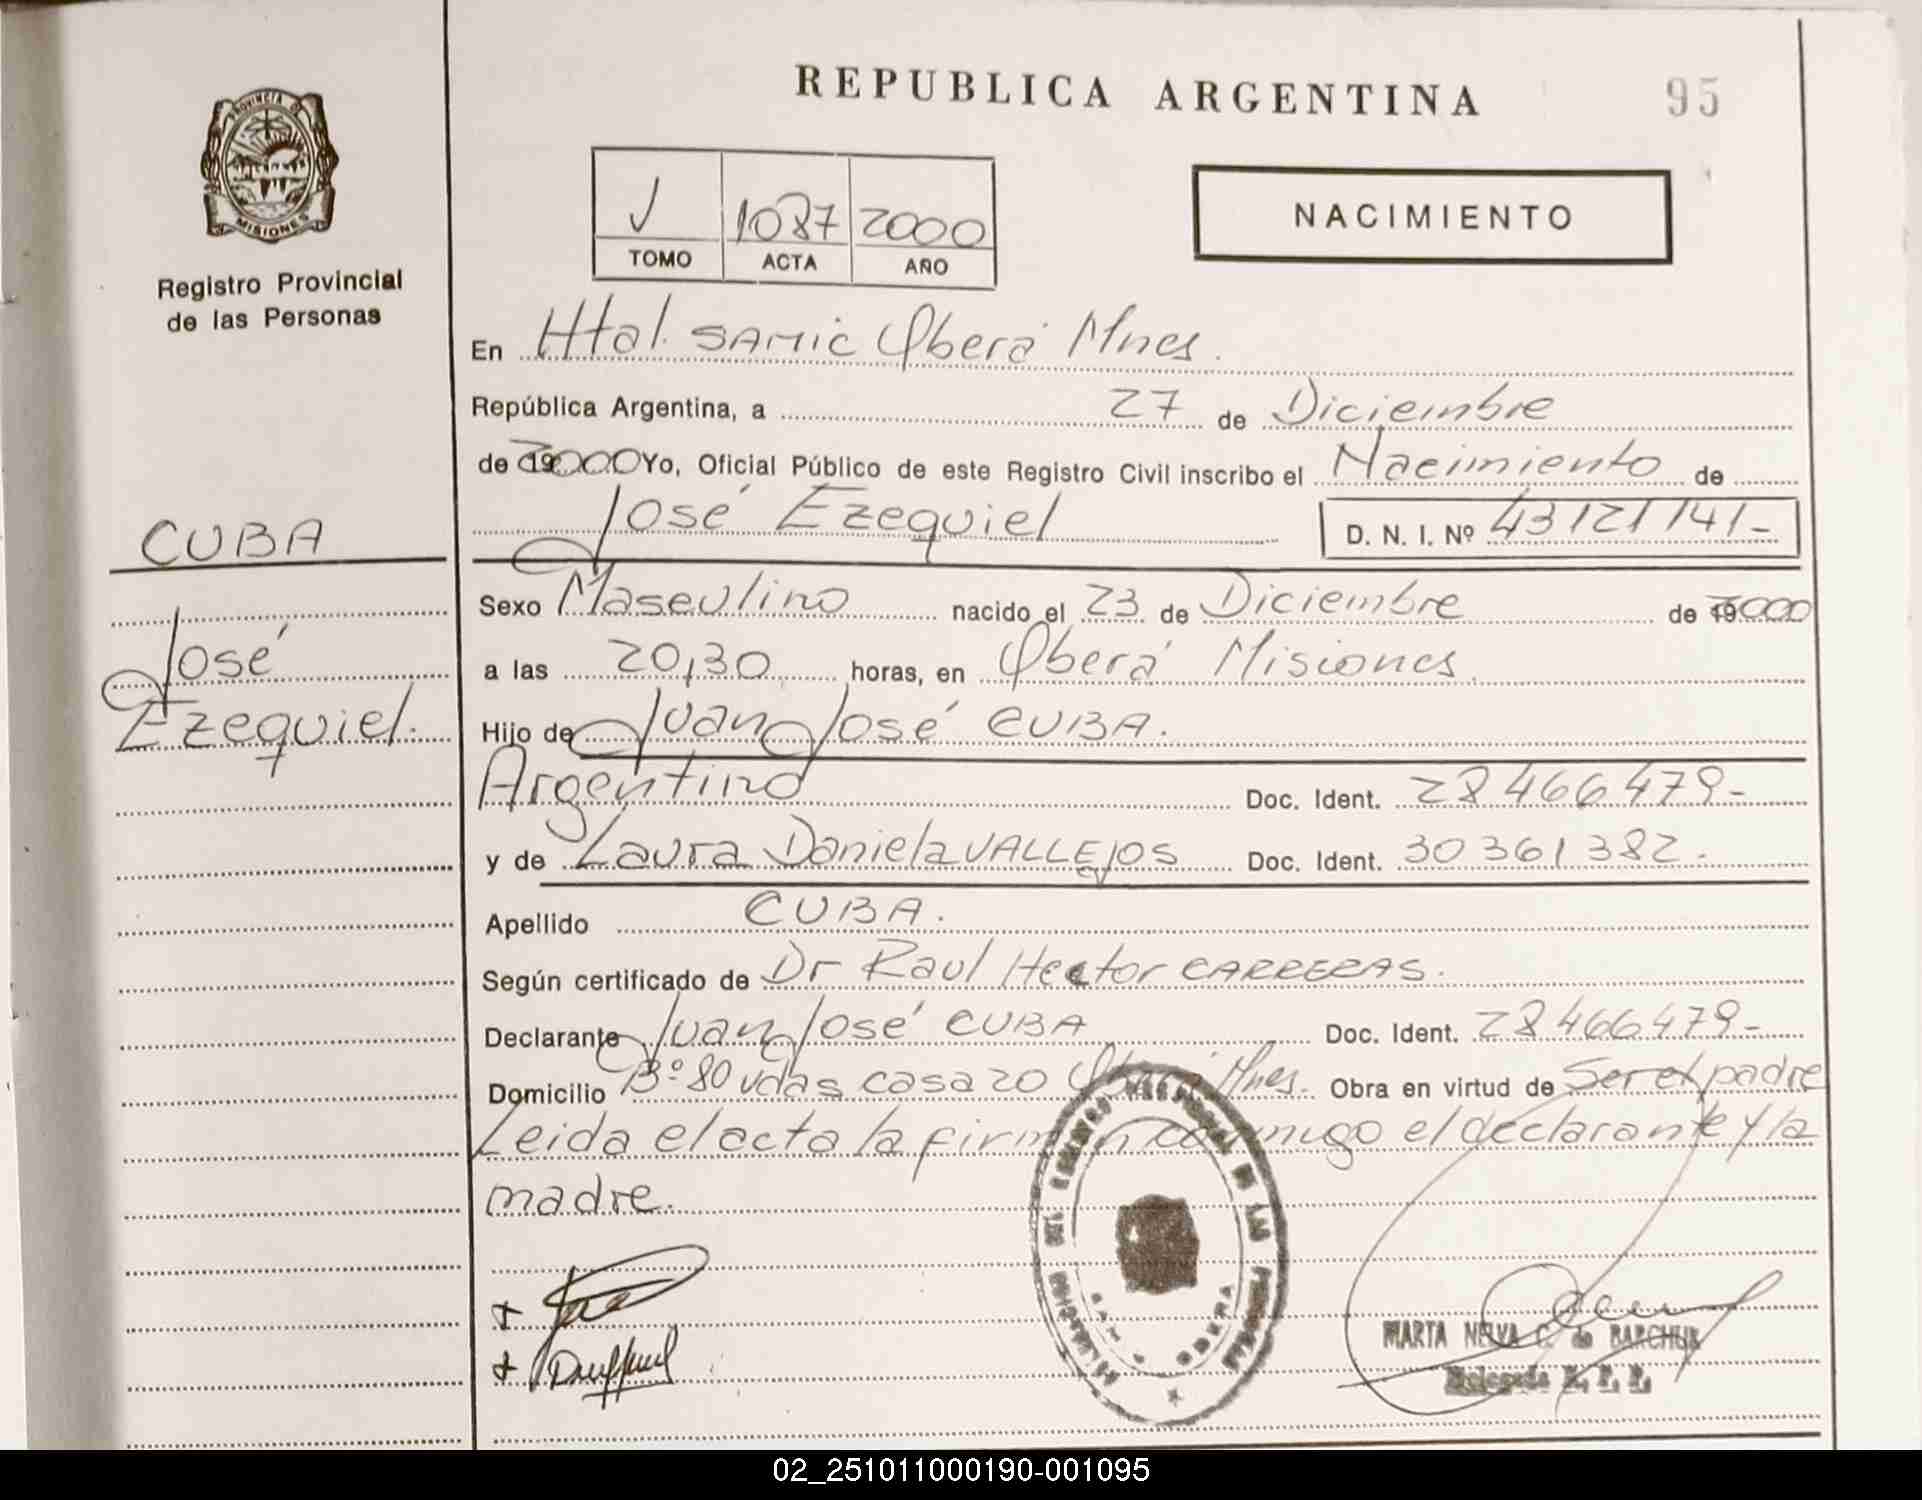 REPUBLICA ARGENTINA
95
PROVINCIA DE
MISIONES
Registro Provincial
de las Personas
V 1087 2000
TOMO ACTA AÑO
NACIMIENTO
En Htal. SAMIC Oberá Mnes.
República Argentina, a 27 de Diciembre
de 2000 Yo, Oficial Público de este Registro Civil inscribo el Nacimiento de
José Ezequiel D. N. I. Nº 43121141-
CUBA
José
Ezequiel.
Sexo Masculino nacido el 23 de Diciembre de 2000
a las 20,30 horas, en Oberá Misiones.
Hijo de Juan José CUBA.
Argentino Doc. Ident. 28466479-
y de Laura Daniela VALLEJOS Doc. Ident. 30361382.
Apellido CUBA.
Según certificado de Dr Raul Hector CARRERAS.
Declarante Juan José CUBA Doc. Ident. 28466479-
Domicilio Bº 80 vdas casa 20 Oberá Mnes. Obra en virtud de Ser el padre
Leida el acta la firman conmigo el declarante y la
madre.
MARTA NELVA C. de
Delegada R. P. P.
02_251011000190-001095